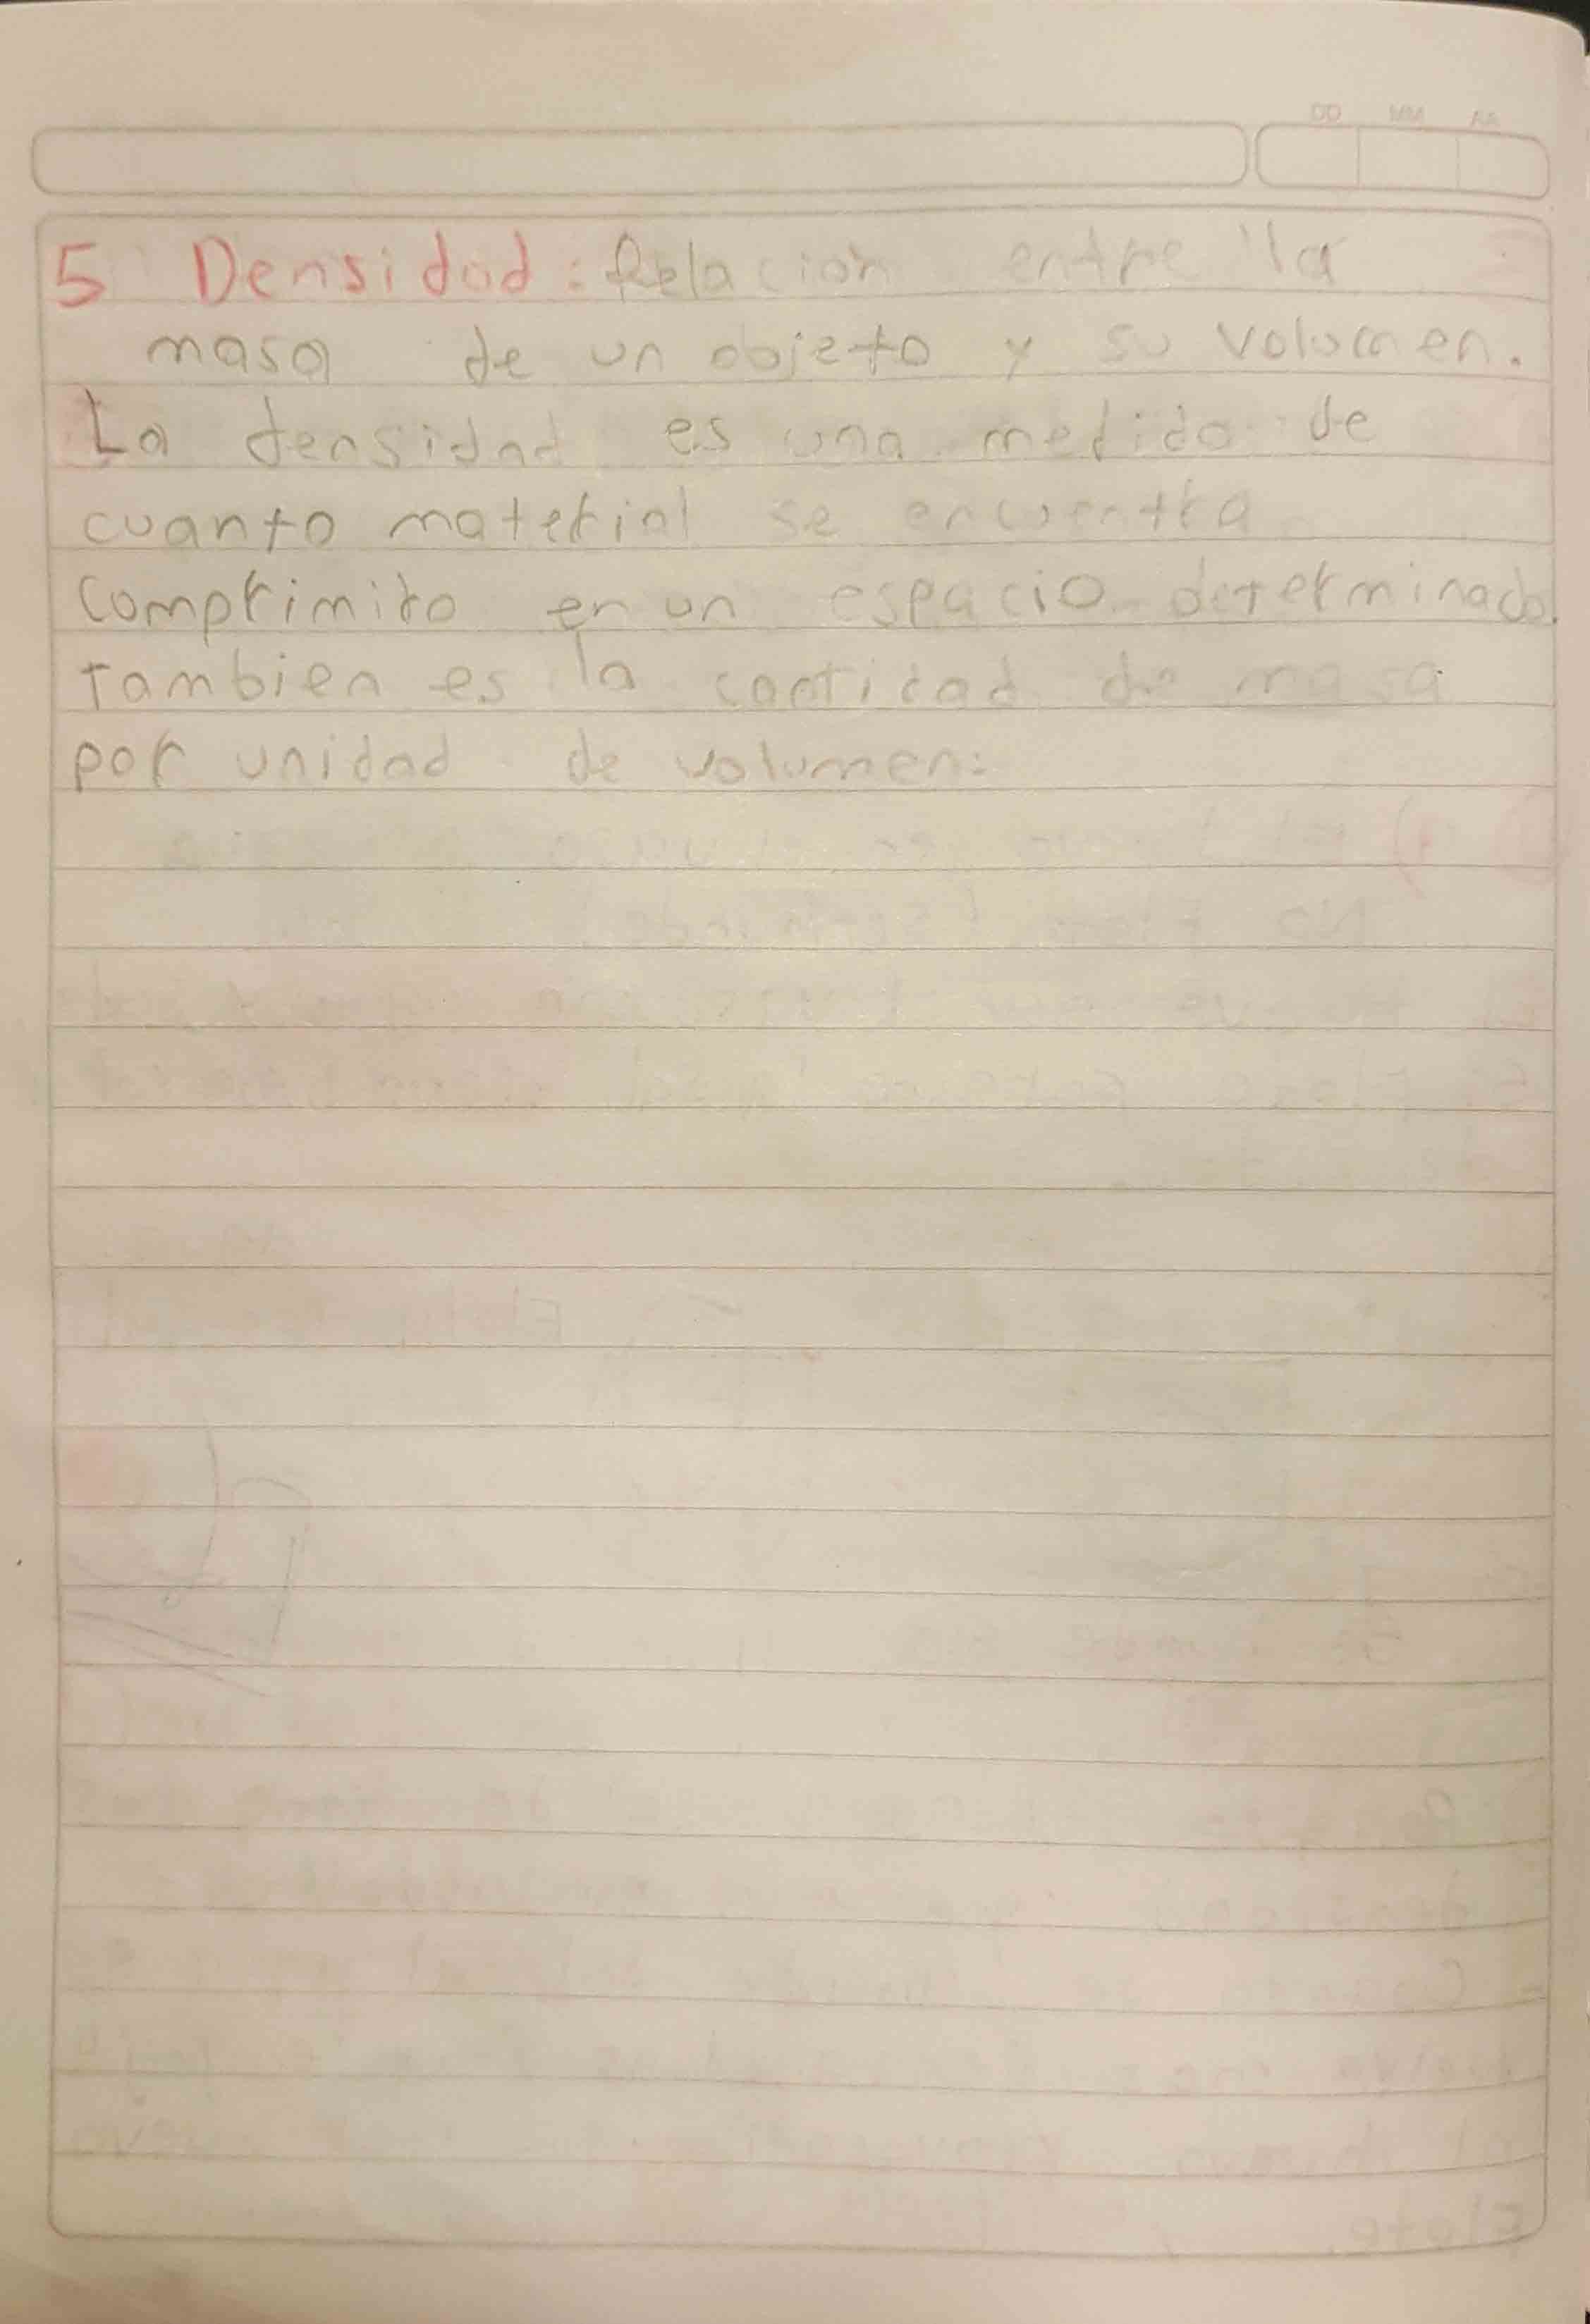 DD MM AA
5 Densidad: Relación entre la
masa de un objeto y su volumen.
La densidad es una medida de
cuanto material se encuentra
comprimido en un espacio determinado.
Tambien es la cantidad de masa
por unidad de volumen: